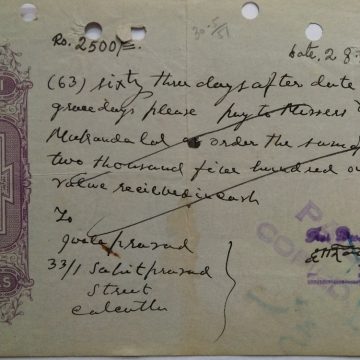 Rs. 2500/=.
30-5/51
Date, 28.
(63) sixty three days after date
grace days please pay to Messers
Makandalal or order the sum of
two thousand five hundred on
value recieved in cash
To
Jwala prasad
33/1 Sahit prasad
Street
Calcutta